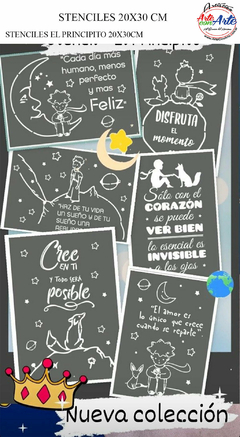 STENCILES 20X30 CM
STENCILES EL PRINCIPITO 20X30CM
Arte
con Arte
"Cada día mas
humano, menos
perfecto
y mas
Feliz"
DISFRUTA
EL
momento
"HAZ DE TU VIDA
UN SUEÑO Y DE TU
SUEÑO UNA
REALIDAD"
Solo con el
CORAZÓN
se puede
VER BIEN
lo esencial es
INVISIBLE
a los ojos
Cree
EN TI
y Todo SERÁ
posible
"El amor es
lo único que crece
cuando se reparte"
Nueva colección